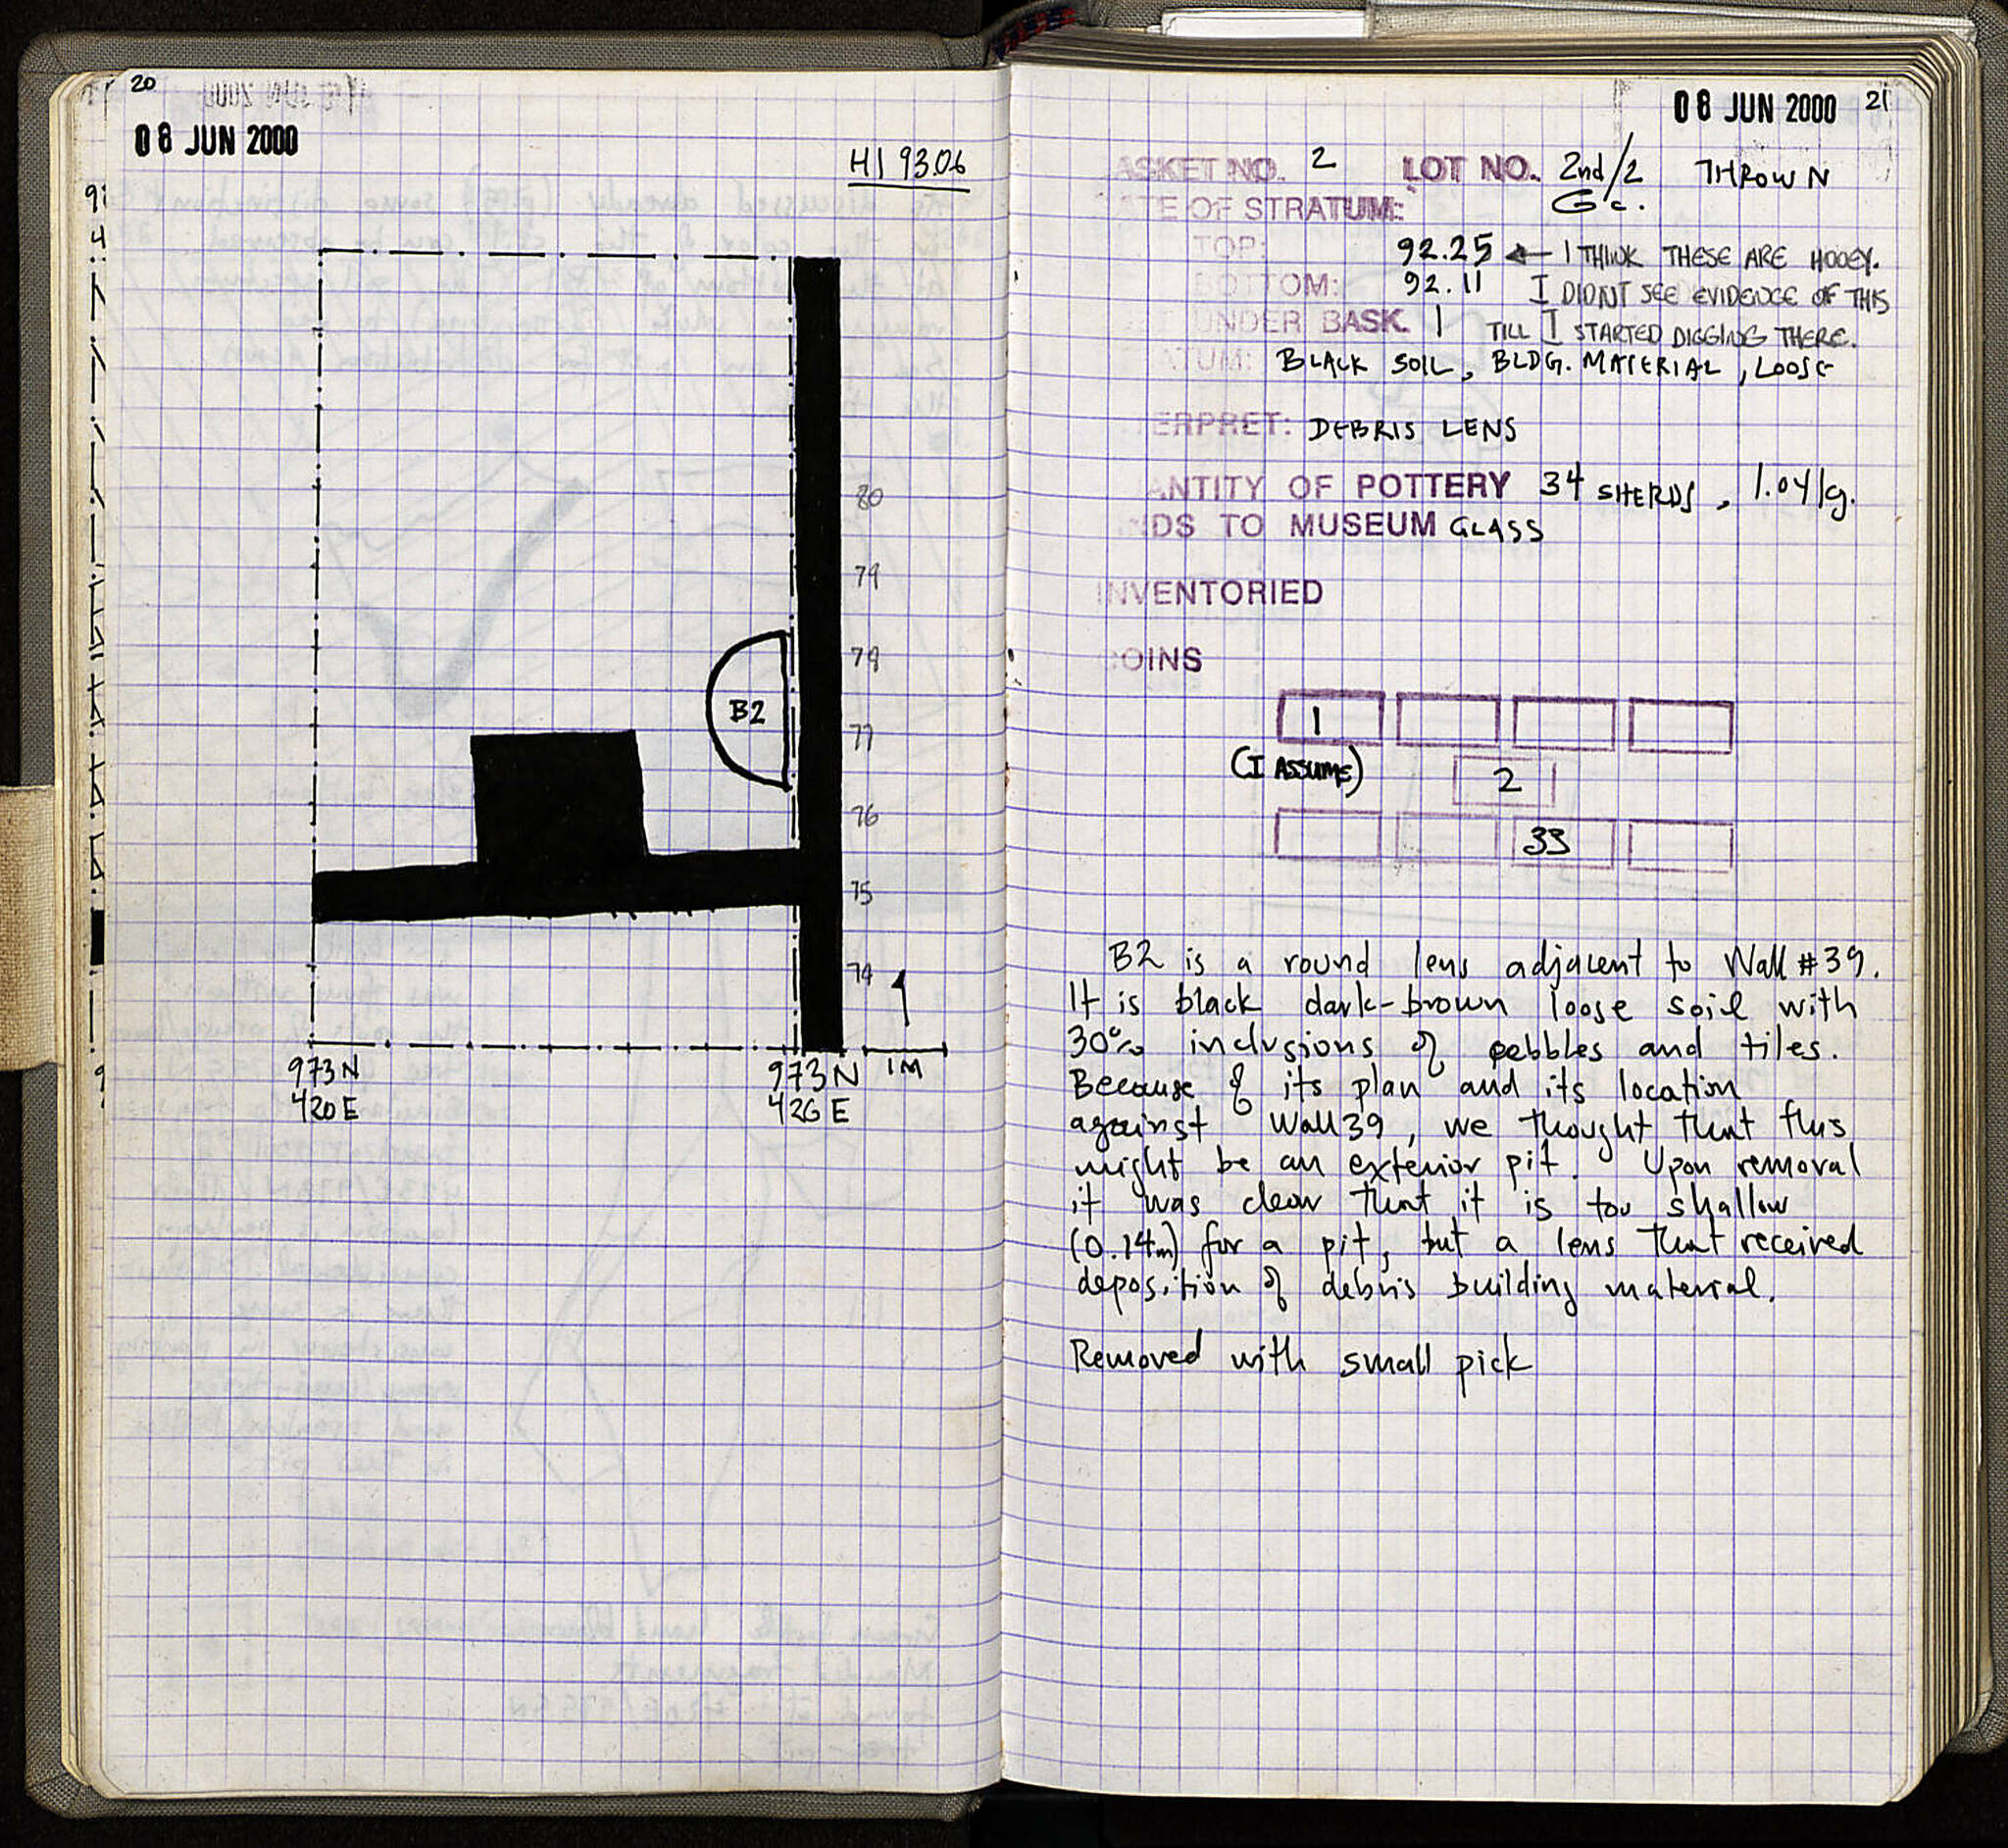 20
08 JUN 2000
HI 93.06
80
79
78
77
76
75
74
973 N
420 E
973 N
426 E
1M
08 JUN 2000 21
ASKET NO. 2 LOT NO. 2nd/2 THROWN
ATE OF STRATUM: G c.
TOP: 92.25 ← I THINK THESE ARE HOOEY.
BOTTOM: 92.11 I DIDNT SEE EVIDENCE OF THIS
UNDER BASK. 1 TILL I STARTED DIGGING THERE.
ATUM: BLACK SOIL, BLDG. MATERIAL, LOOSE
ERPRET: DEBRIS LENS
ANTITY OF POTTERY 34 SHERDS,
NDS TO MUSEUM GLASS
INVENTORIED
COINS
1
(I ASSUME)
2
33
B2
B2 is a round lens adjacent to Wall #39.
It is black dark-brown loose soil with
30% inclusions of pebbles and tiles.
Because of its plan and its location
against Wall 39, we thought that this
might be an exterior pit. Upon removal
it was clear that it is too shallow
(0.14m) for a pit, but a lens that received
deposition of debris building material.
Removed with small pick